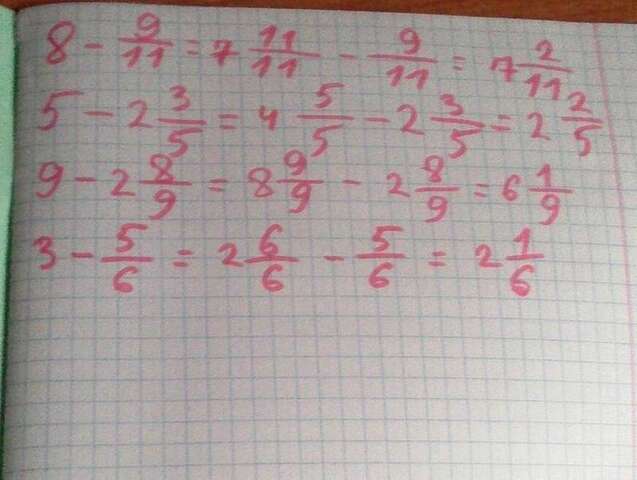 8 - 9/11 = 7 11/11 - 9/11 = 7 2/11
5 - 2 3/5 = 4 5/5 - 2 3/5 = 2 2/5
9 - 2 8/9 = 8 9/9 - 2 8/9 = 6 1/9
3 - 5/6 = 2 6/6 - 5/6 = 2 1/6